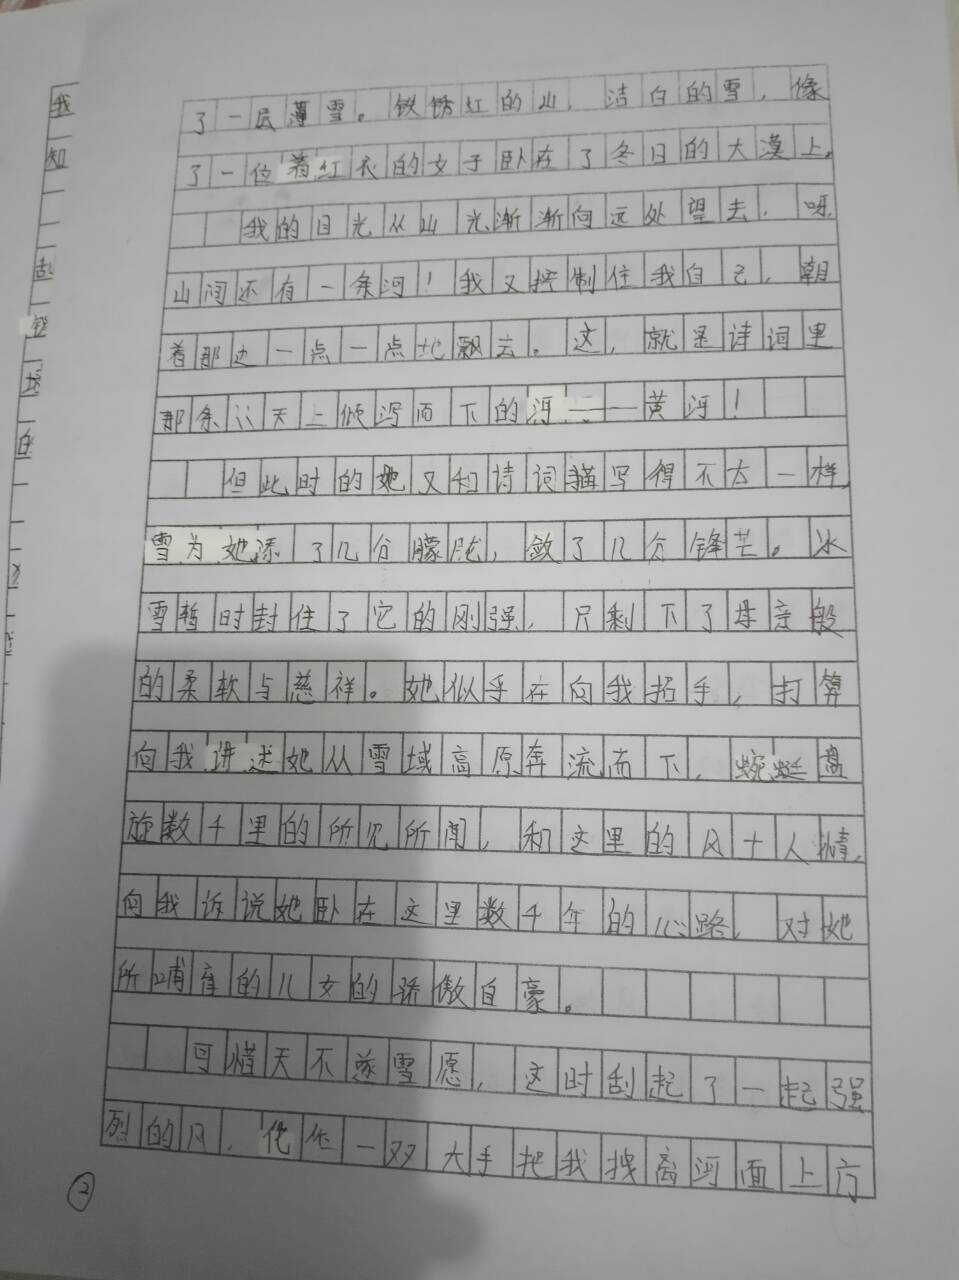 了一层薄雪。铁锈红的山，洁白的雪，像
了一位着红衣的女子卧在了冬日的大漠上。
我的目光从山光渐渐向远处望去，呀，
山间还有一条河！我又控制住我自己，朝
着那边一点一点地飘去。这，就是诗词里
那条从天上倾泻而下的河——黄河！
但此时的她又和诗词描写得不太一样，
雪为她添了几分朦胧，敛了几分锋芒。冰
雪暂时封住了它的刚强，只剩下了母亲般
的柔软与慈祥。她似乎在向我招手，打算
向我讲述她从雪域高原奔流而下，蜿蜒盘
旋数千里的所见所闻，和这里的风土人情，
向我诉说她卧在这里数千年的心路，对她
所哺育的儿女的骄傲自豪。
可惜天不遂雪愿，这时刮起了一起强
烈的风，化作一双大手把我拽离河面上方
②
我
知
一
一
乱
一
铠
一
白
一
一